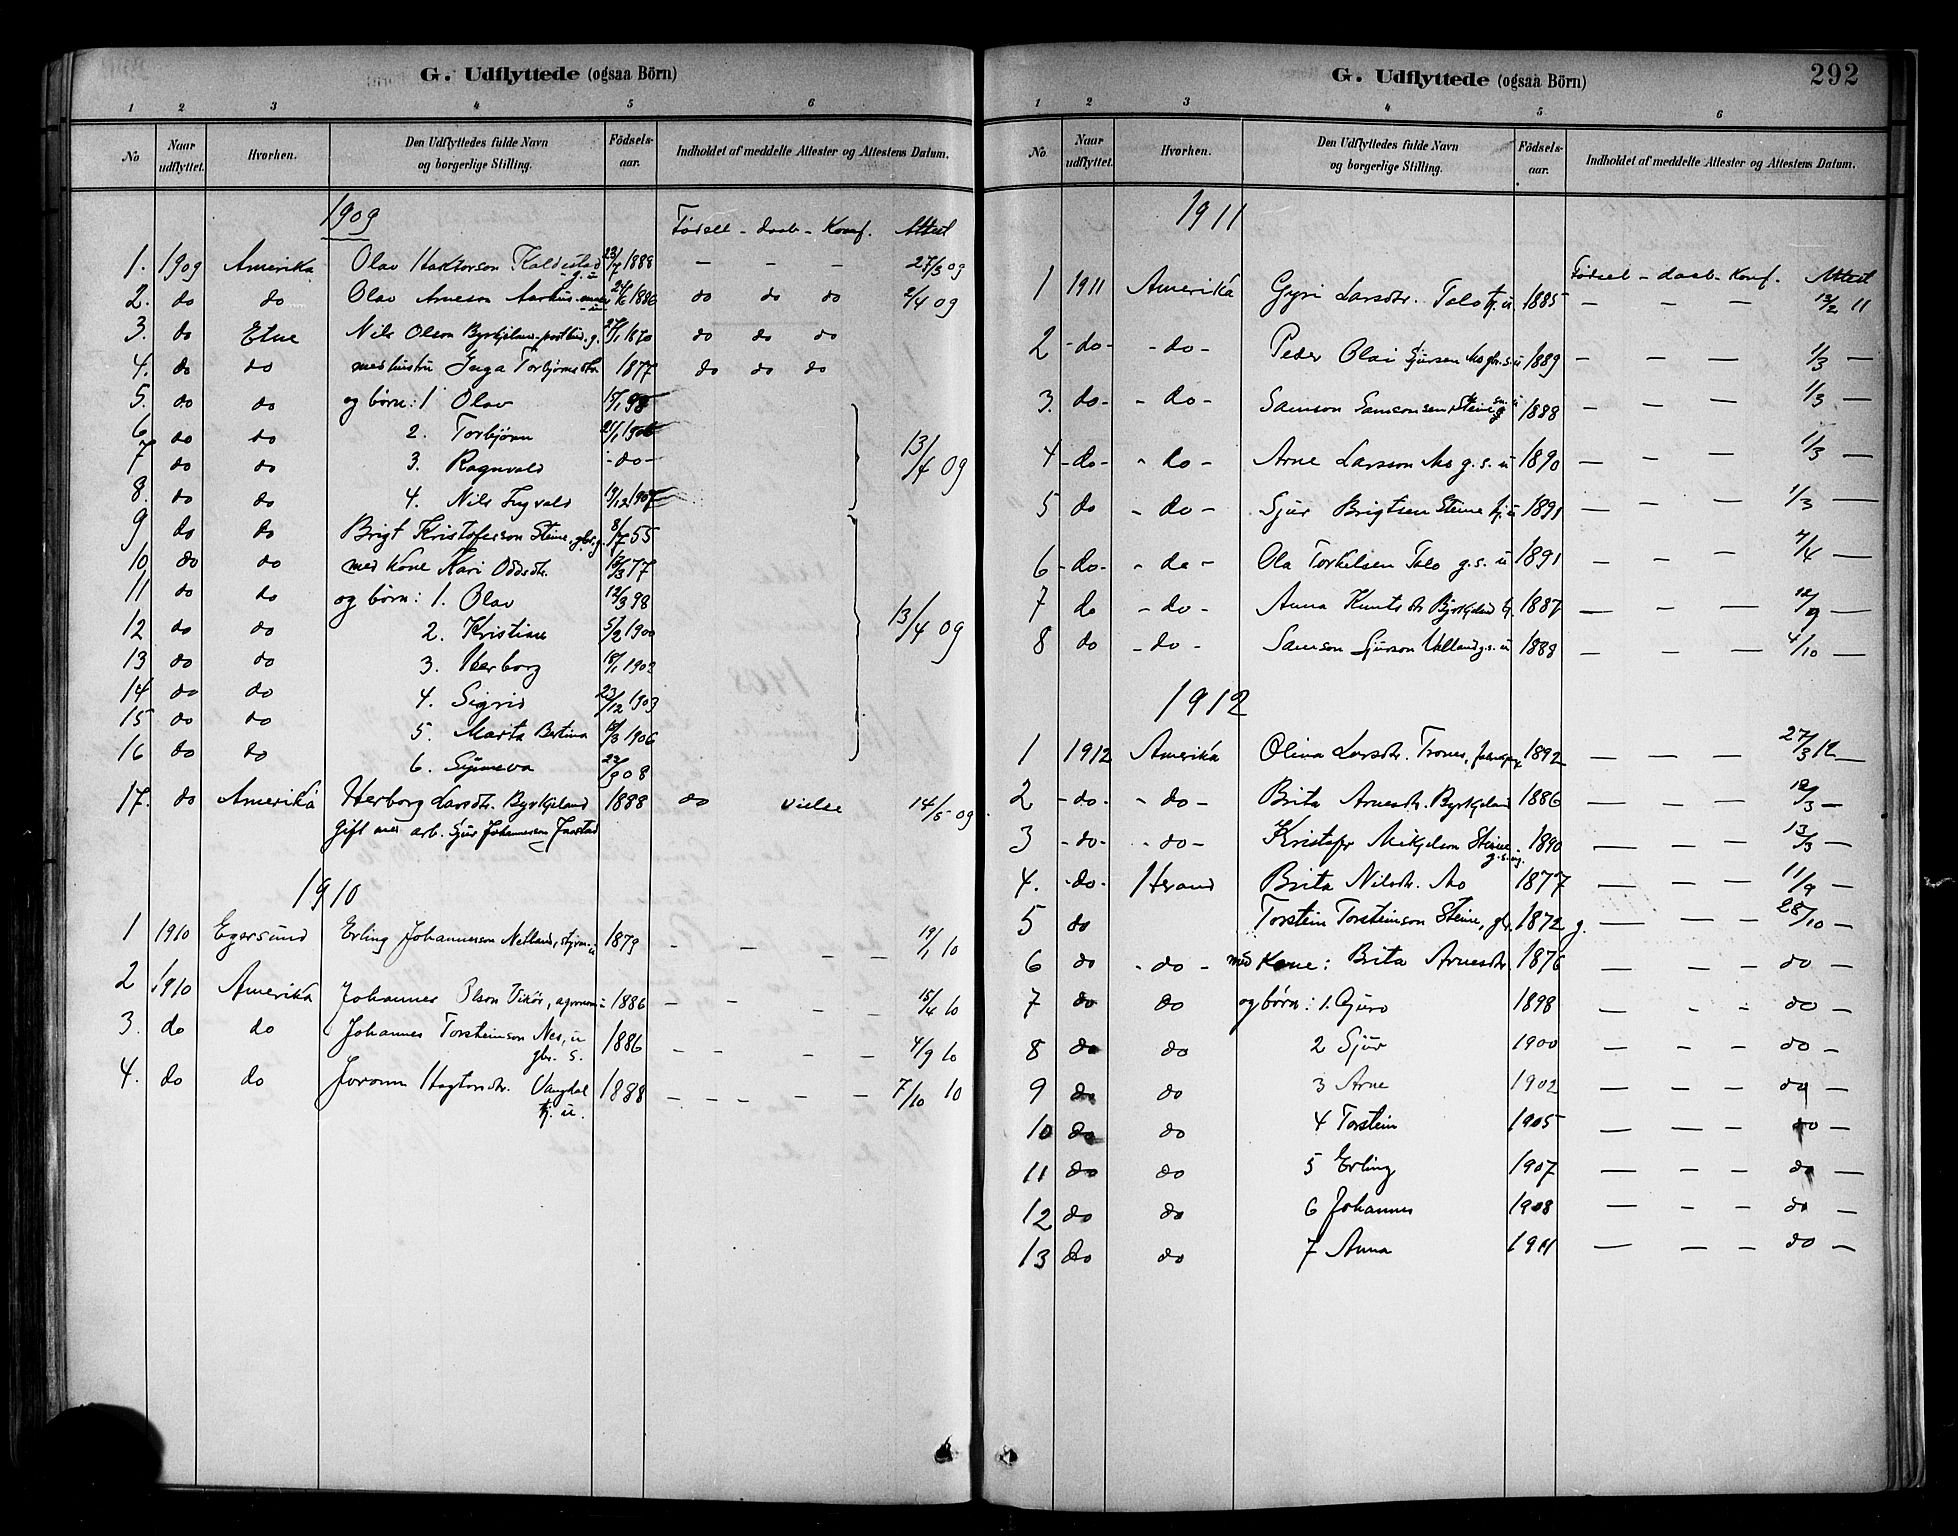 G. Udflyttede (ogsaa Börn)
1 2 3 4 5 6
No Naar udflyttet. Hvorhen. Den Udflyttedes fulde Navn og borgerlige Stilling. Födsels-aar. Indholdet af meddelte Attester og Attestens Datum.
1909
Födsel - daab - Konf. Attest
1. 1909 Amerika Olav Kaldestad g. u 23/7 1888 — — — 27/3 09
2. do do Olav Arneson Aarhus 1886 do do do 2/4 09
3. do Etne Nils Olson Byrkjeland postbud. g. 1870 do do do
4. do do med hustru Inga Torbjörnsdtr 1877 do do do
5. do do og börn: 1 Olav 98
6 do do 2. Torbjörn 21/1
7 do do 3. Ragnvald -do- 13/4 09
8. do do 4. Nils Ingvald 19/12 1907
9 do do Brigt Kristoferson Steine, gbr. g. 8/7 55
10, do do med kone Kari Oddsdtr. 77
11 do do og börn: 1. Olav 12/3 98
12 do do 2. Kristian 5/2 1900 13/4 09
13 do do 3. Herborg 18/1 1902
14 do do 4. Sigrid 23/12 1903
15 do do 5. Marta Bertina 1906
16 do do 6. Synneva 22/9 08
17. do Amerika Herborg Larsdtr. Byrkjeland 1888 do vielse 14/5 09
gift med arb. Sjur Johannesson
1910
1 1910 Egersund Erling Johannesson Netland, styrm. u 1879 — — — — 19/1 10
2 1910 Amerika Johannes Olson Vikör, agronom u 1886 — — — — 15/4 10
3. do do Johannes Torsteinson Nes, u gbr. s. 1886 — — — — 4/9 10
4. do do Joronn Hagtorsdtr. Vangdal tj. u. 1888 — — — — — 7/10 10
G. Udflyttede (ogsaa Börn) 292
1 2 3 4 5 6
No Naar udflyttet. Hvorhen. Den Udflyttedes fulde Navn og borgerlige Stilling. Födsels-aar. Indholdet af meddelte Attester og Attestens Datum.
1911
Födsel - daab - Konf. Attest
1 1911 Amerika Gyri Larsdtr. Tolo tj. u. 1885 — — — 13/2 11
2 -do- -do- Peder Olai Sjursen Mo gbr. s. u 1889 — — — 1/3 —
3. do- -do- Samson Samsonsen Steine 1888 — — — 1/3 —
4 -do- -do- Arne Larsson Mo g. s. u 1890 — — — 1/3 —
5 do -do- Sjur Brigtsen Steine tj. u 1891 — — — 1/3 —
6 -do- -do- Ola Torkelsen Tolo g. s. u 1891 — — — 4/4 —
7 do -do- Anna Knutsdtr Byrkjeland tj. 1887 — — — 12/9 —
8 do -do- Samson Sjurson Valland g. s. u 1888 — — — 4/10 —
1912
1 1912 Amerika Oliva Larsdtr. Trones, 1892 — — — 27/3 12 —
2 -do- -do- Brita Arnesdtr. Byrkjeland 1886 — — — 12/3 —
3 -do- -do- Kristofer Mikjelson Steine g. s. ug. 1890 — — — 13/3 —
4. -do- Herand Brita Nilsdtr. Mo 1877 — — — 11/9 —
5 do Torstein Torsteinson Steine, gbr. 1872 g. — — — 28/10 —
6 do -do- med Kone: Brita Arnesdtr 1876 — — — do —
7 do do og børn: 1. Guro 1898 — — — do
8 do do 2 Sjur 1900 — — — do —
9 do do 3 Arne 1902 — — — do —
10 do do 4 Torstein 1905 — — — do —
11 do do 5 Erling 1907 — — — do —
12 do do 6 Johannes 1908 — — — do —
13 do do 7 Anna 1911 — — — do —